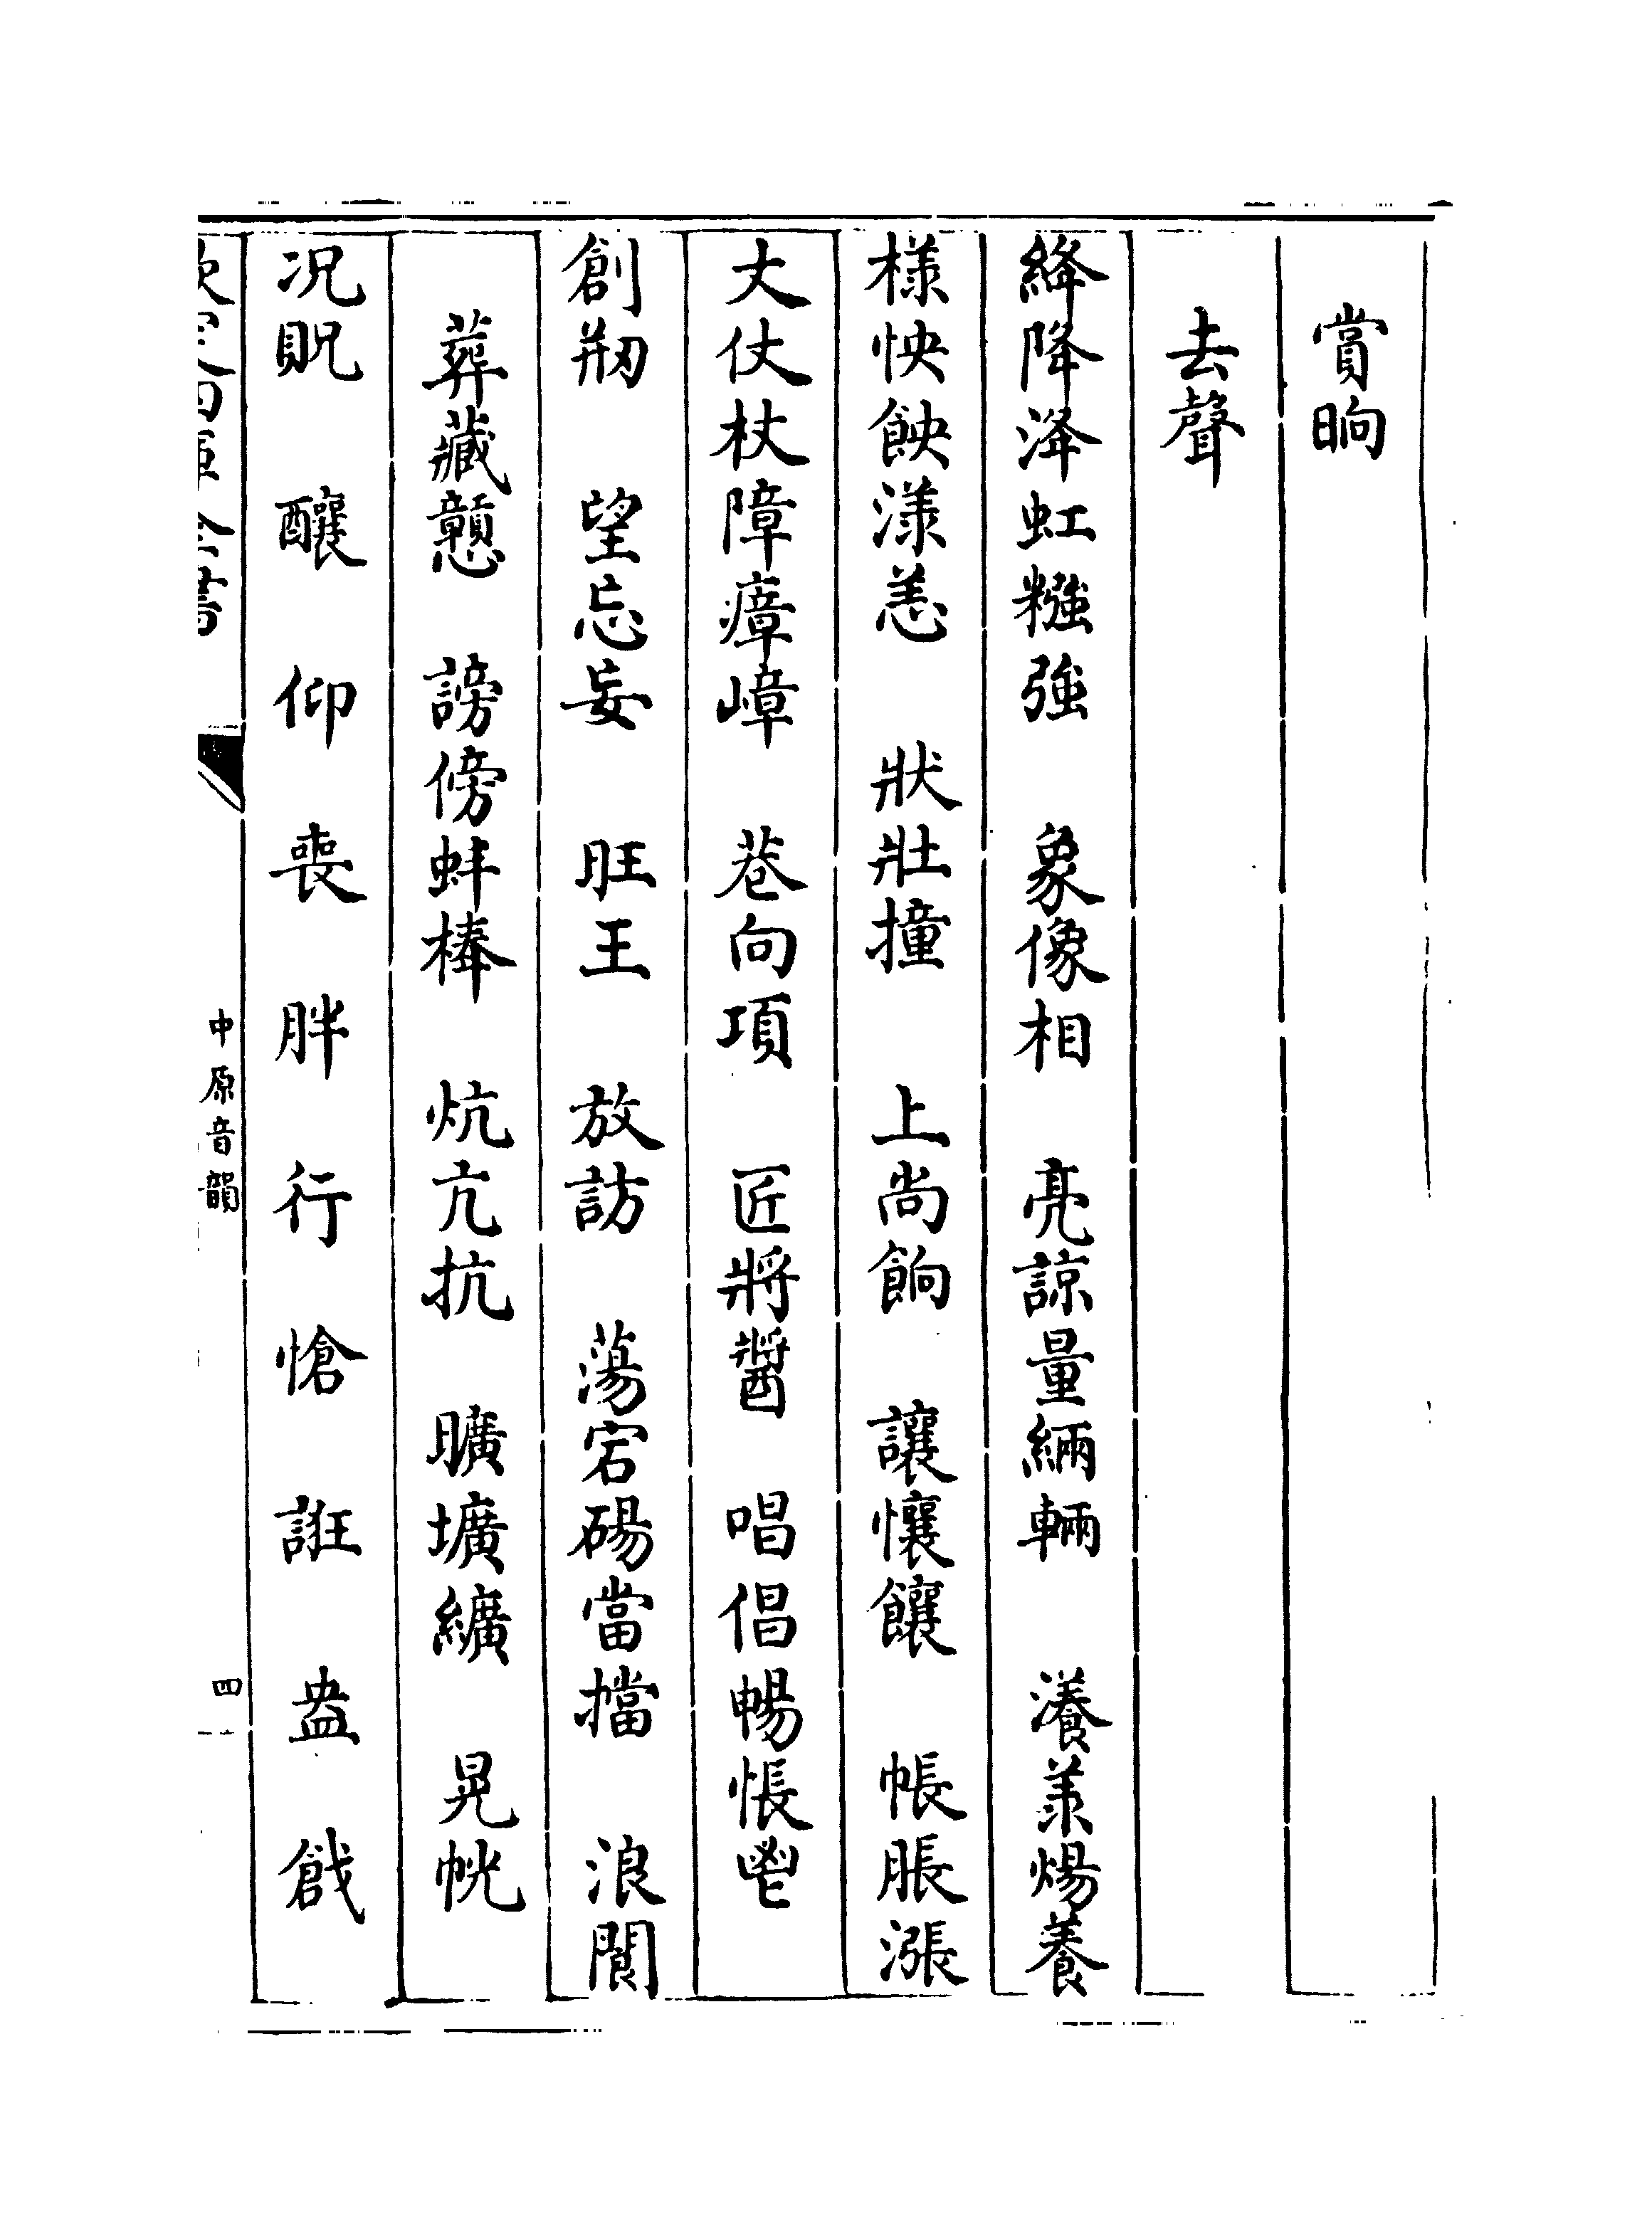 賞晌
去聲
絳降洚虹糨強　象像相　亮諒量緉輛　瀁羕煬養
様怏䬬漾恙　狀壯撞　上尚餉　讓懹饟　帳脹漲
丈仗杖障瘴嶂　巷向項　匠將醬　唱倡暢悵鬯
創剏　望忘妄　旺王　放訪　蕩宕碭當擋　浪閬
葬藏戇　謗傍蚌棒　炕亢抗　曠壙纊　晃恍
况貺　釀　仰　喪　胖　行　愴　誑　盎　戧
欽定四庫全書
中原音韻
四